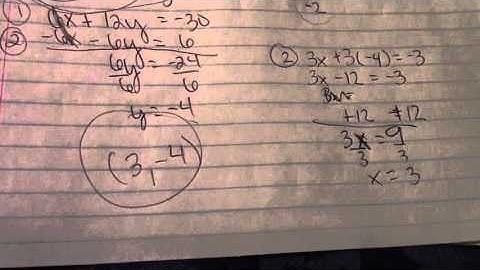 ① 6x + 12y = -30
② -6x - 6y = 6
6y = -24
6 6
y = -4
(3, -4)
-2
② 3x + 3(-4) = -3
3x - 12 = -3
+12 +12
3x = 9
3 3
x = 3